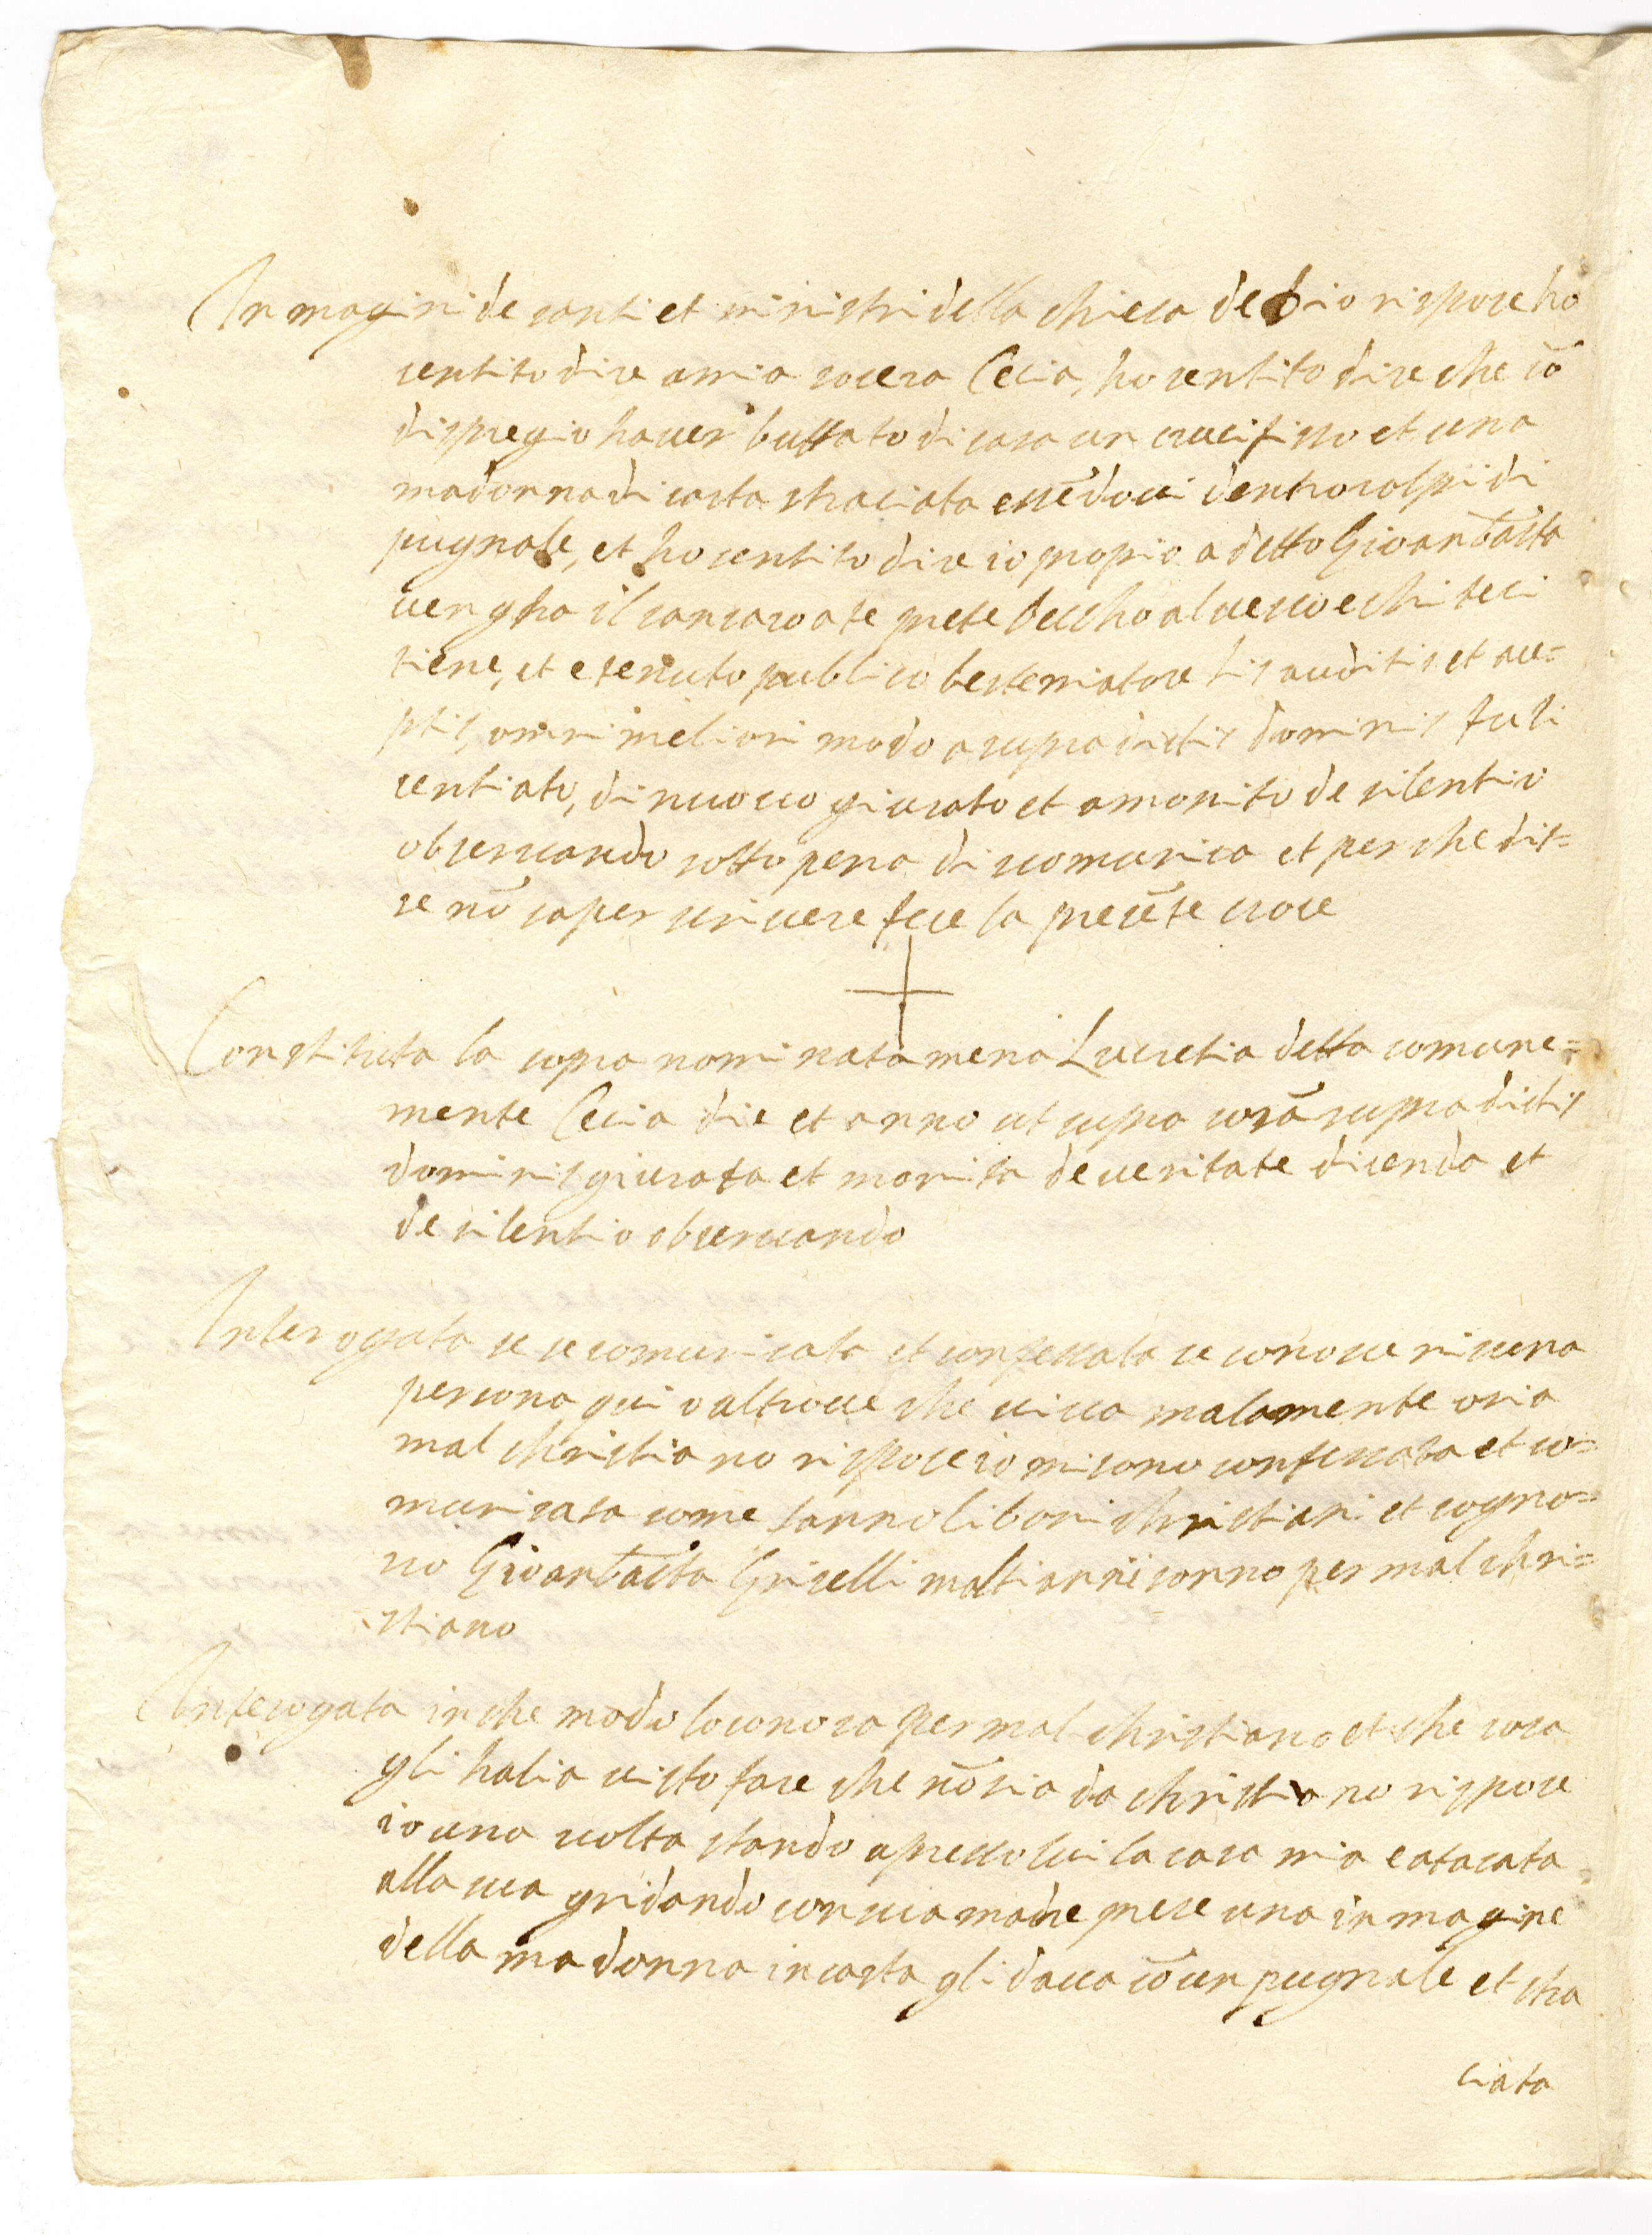 Inmagini de santi et ministri della chiesa de dio rispose ho
sentito dire a mia socera Cecia, ho sentito dire che cō
dispregio haver buttato di casa un crucifisso et una
madonna di carta straciata essēdovi dentro colpi di
pugnale, et ho sentito dire io propio a detto Giovanbatta
vengha il cancaro a te prete beccho al vescovo e chi te ci
tiene, et e tenuto publico bestemiatore his auditis et acce=
ptis, omni meliori modo a supradictis dominis fu li
centiato, di nuovo giurato et amonito de silentio
observando sotto pena di scomunica et perche dis=
se nō saper scrivere fece la presēte croce
+
Constituta la sopra nominata mena Lucretia detta comune=
mente Cecia die et anno ut supra corā supradictis
dominis giurata et monita de veritate dicenda et
de silentio observando
Interogata se se comunicata et confessata se conosce nisuna
persona qui o altrove che viva malamente o sia
mal christiano rispose io mi sono confessata et co=
municata come fanno li boni christiani et cogno=
sco Giovanbatta Griselli molti anni sonno per mal chri=
stiano
Interogata in che modo lo conosca per mal christiano et che cosa
gli habia visto fare che nō sia da christiano rispose
io una volta stando apresso lui la casa mia e atacata
alla sua gridando con sua madre prese una inmagine
della madonna in carta gli dava cō un pugnale et stra
ciata